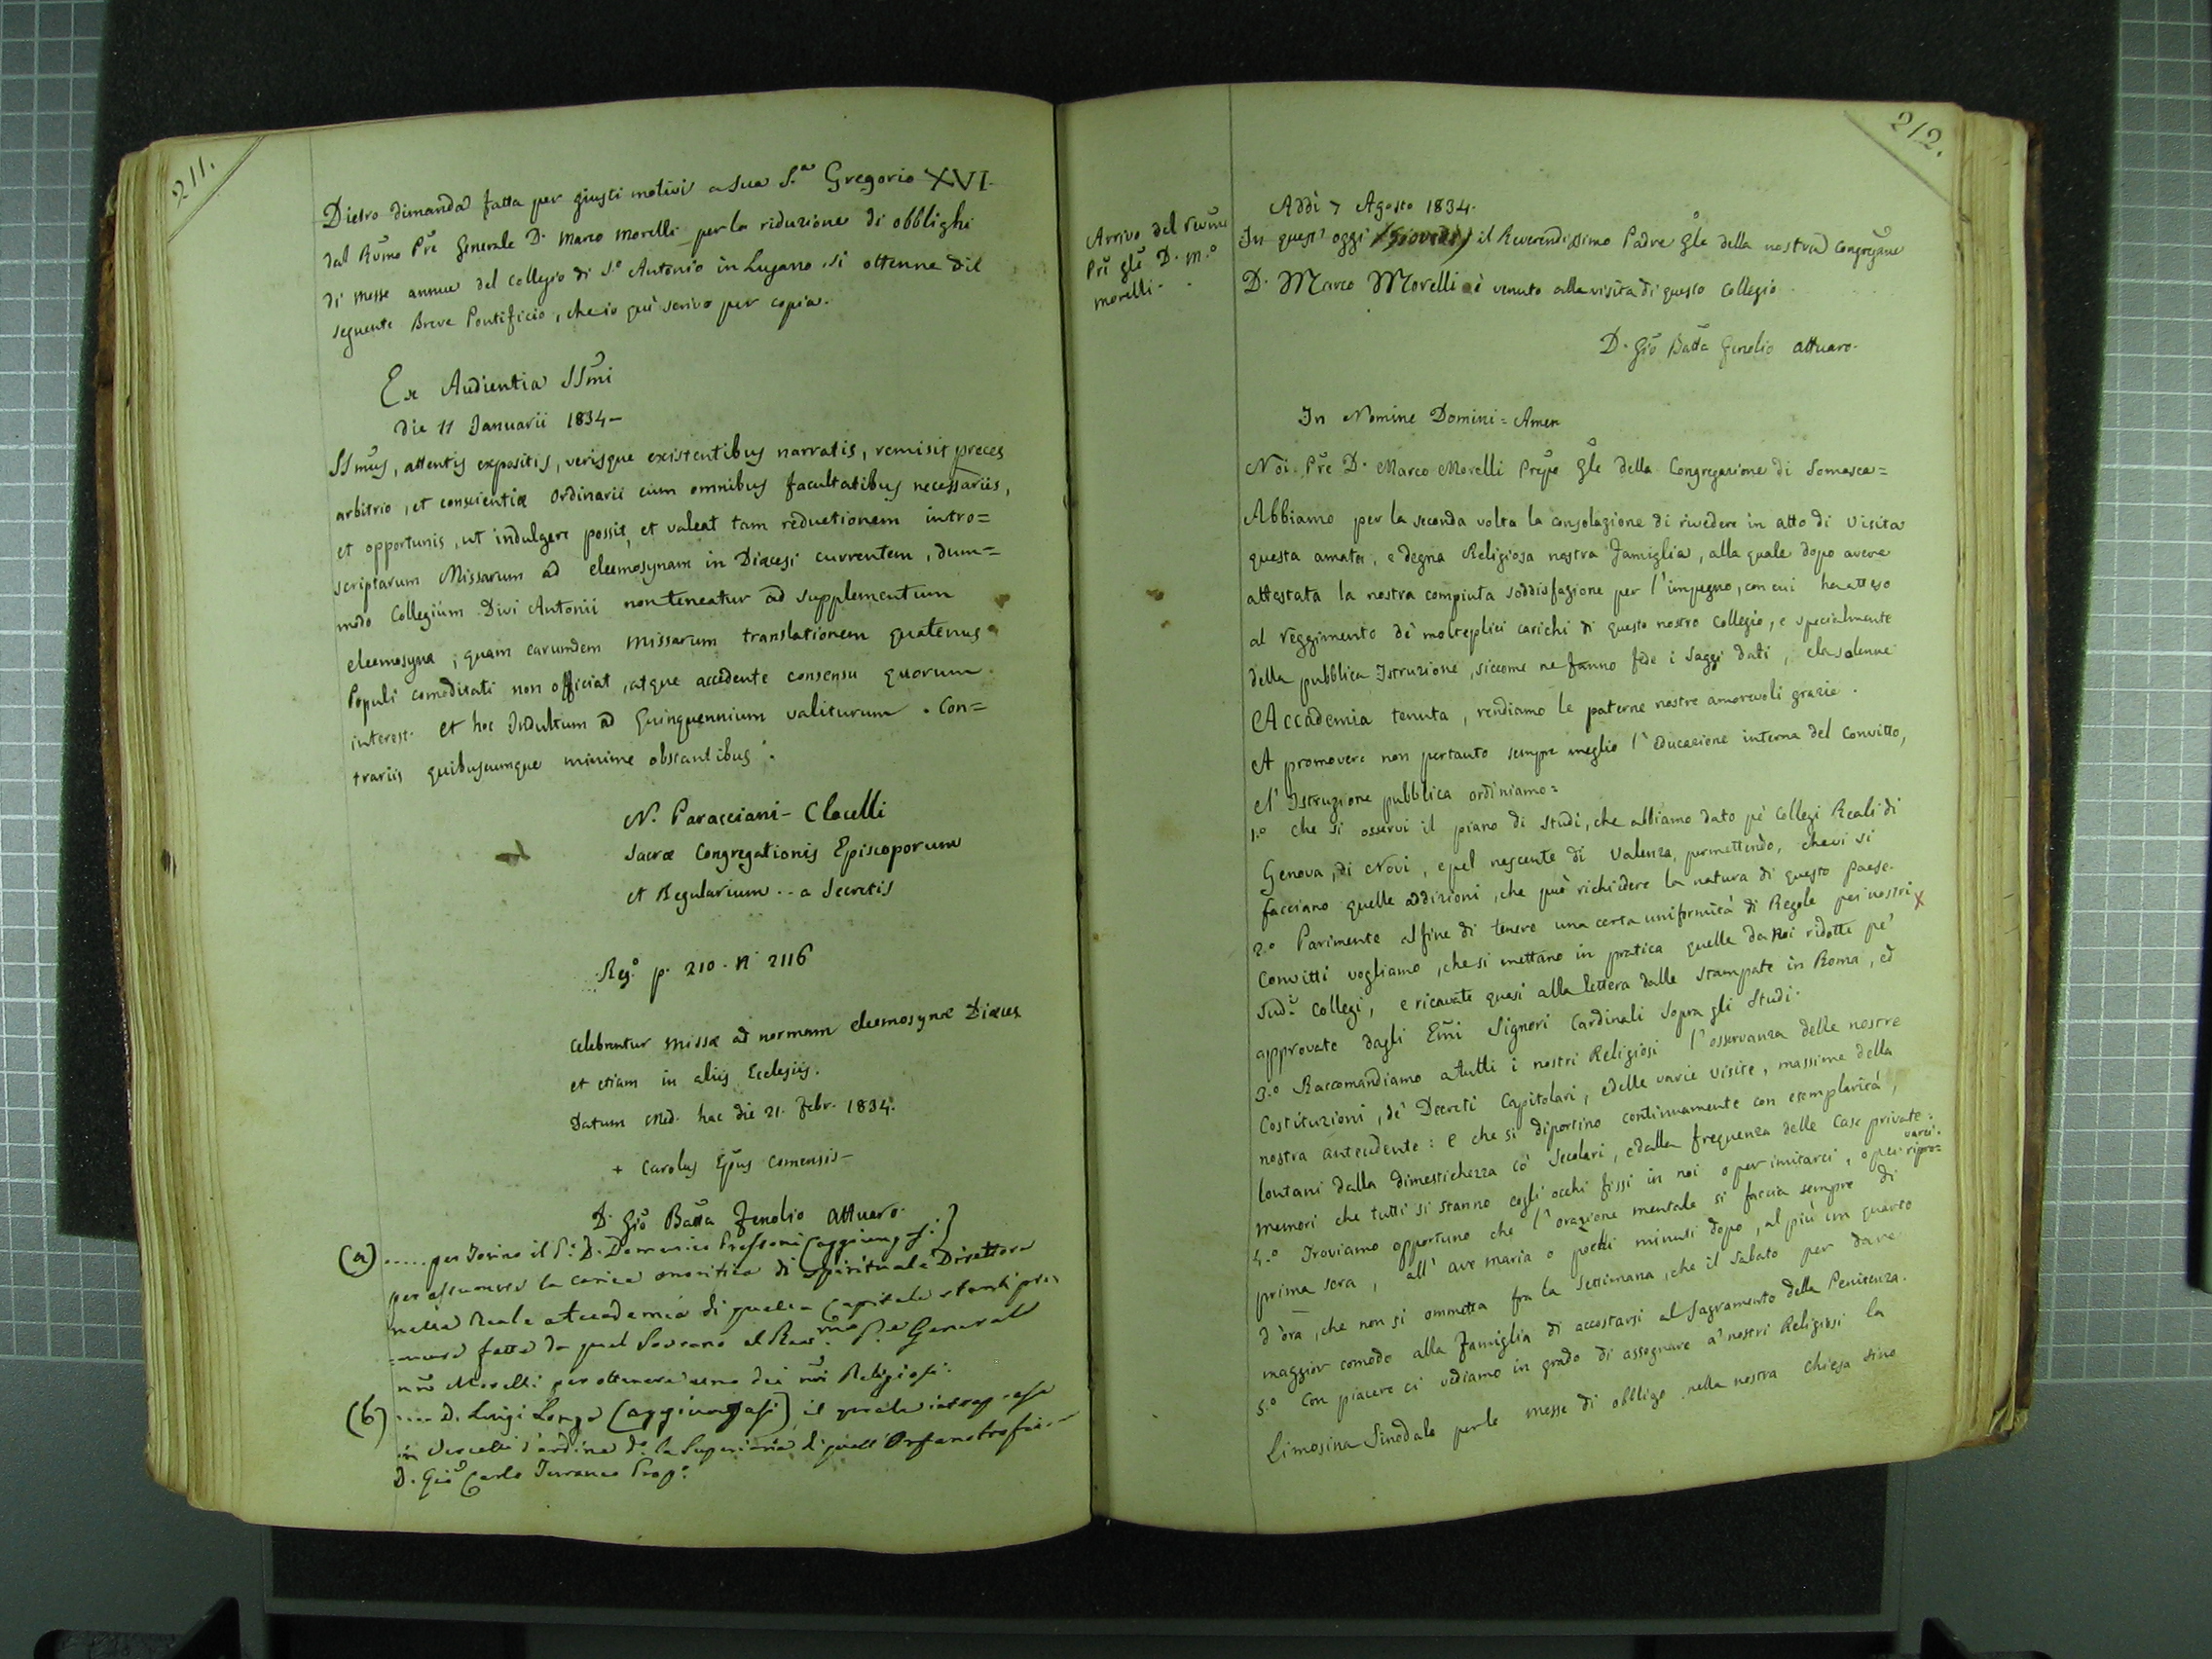 211.
Dietro dimanda fatta per giusti motivi a sua S.ª Gregorio XVI.
dal Rm̃o Prẽ Generale D. Marco Morelli per la riduzione di obblighi
di Messe annue del Collegio di S.º Antonio in Lugano si ottenne dil
seguente Breve Pontificio, che io quì scrivo per copia.
Ex Audientia SSm̃i
die 11 Januarii 1834-
SSm̃us, attentis expositis, verisque existentibus narratis, remisit preces
arbitrio, et conscientiæ Ordinarii cum omnibus facultatibus necessariis,
et opportunis, ut indulgere possit, et valeat tam reductionem intro=
scriptarum Missarum ad eleemosynam in Diœcesi currentem, dum=
modo Collegium Divi Antonii non teneatur ad supplementum
eleemosyna, quam earumdem missarum translationem quatenus
Populi comoditati non officiat, atque accedente consensu quorum
interest. et hoc Indultum ad Quinquennium valiturum. Con=
trariis quibuscumque minime obstantibus.
N. Paracciani-Clacelli
Sacræ Congregationis Episcoporum
et Regularium .. a Secretis
Reg.º p. 210. N 2116
Celebrentur missæ ad normam eleemosynæ Diœces
et etiam in aliis Ecclesiis.
Datum Med. hac die 21. Febr. 1834.
+ Carolus Ep̃us Comensis-
D. Giõ Batta Fenolio Attuaro.
(a) ..... per Torino il P. D. Domenico (aggiungasi)
per assumere la carica onorifica di Spirituale Direttore
nella Reale Accademia di quella Capitale stanti pre=
=mure fatte da quel Sovrano al Rev.mo P.e Generale
nr̃o Morelli per ottenere uno dei nr̃i Religiosi.
(b) .... D. Luigi Longo (aggiungasi) il quale intraprese
in Vercelli l'ordine d. la Superiorià di quell' Orfanotrofio-
D. Giõ Carlo Prep.
212.
Arrivo del revm̃o
Prẽ glẽ D. M.º
Morelli.
Addì 7 Agosto 1834.
In quest' oggi (Giovedì) il Reverendissimo Padre Gle della nostra Congregaz̃ne
D. Marco Morelli è venuto alla visita di questo Collegio.
D. Giõ Batta Fenolio attuaro.
In Nomine Domini = Amen
Noi. Prẽ D. Marco Morelli Prepo Gle della Congregazione di Somasca=
Abbiamo per la seconda volta la consolazione di rivedere in atto di Visita
questa amata, e degna Religiosa nostra Famiglia, alla quale dopo avere
attestata la nostra compiuta soddisfazione per l'impegno, con cui ha atteso
al reggimento de' molteplici carichi di questo nostro Collegio, e specialmente
della pubblica Istruzione, siccome ne fanno fede i Saggi dati, e la solenne
Accademia tenuta, rendiamo le paterne nostre amorevoli grazie.
A promovere non pertanto sempre meglio l'educazione interna del Convitto,
e l'Istruzione pubblica ordiniamo=
1.º Che si osservi il piano di studi, che abbiamo dato pe' Collegi Reali di
Genova, di Novi, e pel nascente di Valenza, permettendo, che vi si
facciano quelle addizioni, che può richiedere la natura di questo paese.
2.º Parimente al fine di tenere una certa uniformità di Regole pei nostri X
Convitti vogliamo, che si mettano in pratica quelle da Noi ridotte pe'
sud.i Collegi, e ricavate quasi alla lettera dalle stampate in Roma, ed
approvate dagli Em̃i Signori Cardinali Sopra gli Studi.
3.º Raccomandiamo a tutti i nostri Religiosi l'osservanza delle nostre
Costituzioni, de' Decreti Capitolari, e delle varie visite, massime della
nostra antecedente: e che si diportino continuamente con esemplarità,
lontani dalla dimestichezza co' Secolari, e dalla frequenza delle Case private.
memori che tutti si stanno cogli occhi fissi in noi o per imitarci, o per ripro=
varci.
4.º Troviamo opportuno che l'orazione mentale si faccia sempre di
prima sera, all' ave maria o pochi minuti dopo, al più un quarto
d'ora, che non si ommetta fra la settimana, che il Sabato per dare
maggior comodo alla Famiglia di accostarsi al Sagramento della Penitenza.
5.º Con piacere ci vediamo in grado di assegnare a' nostri Religiosi la
Limosina Sinodale per le messe di obbligo nella nostra Chiesa sino